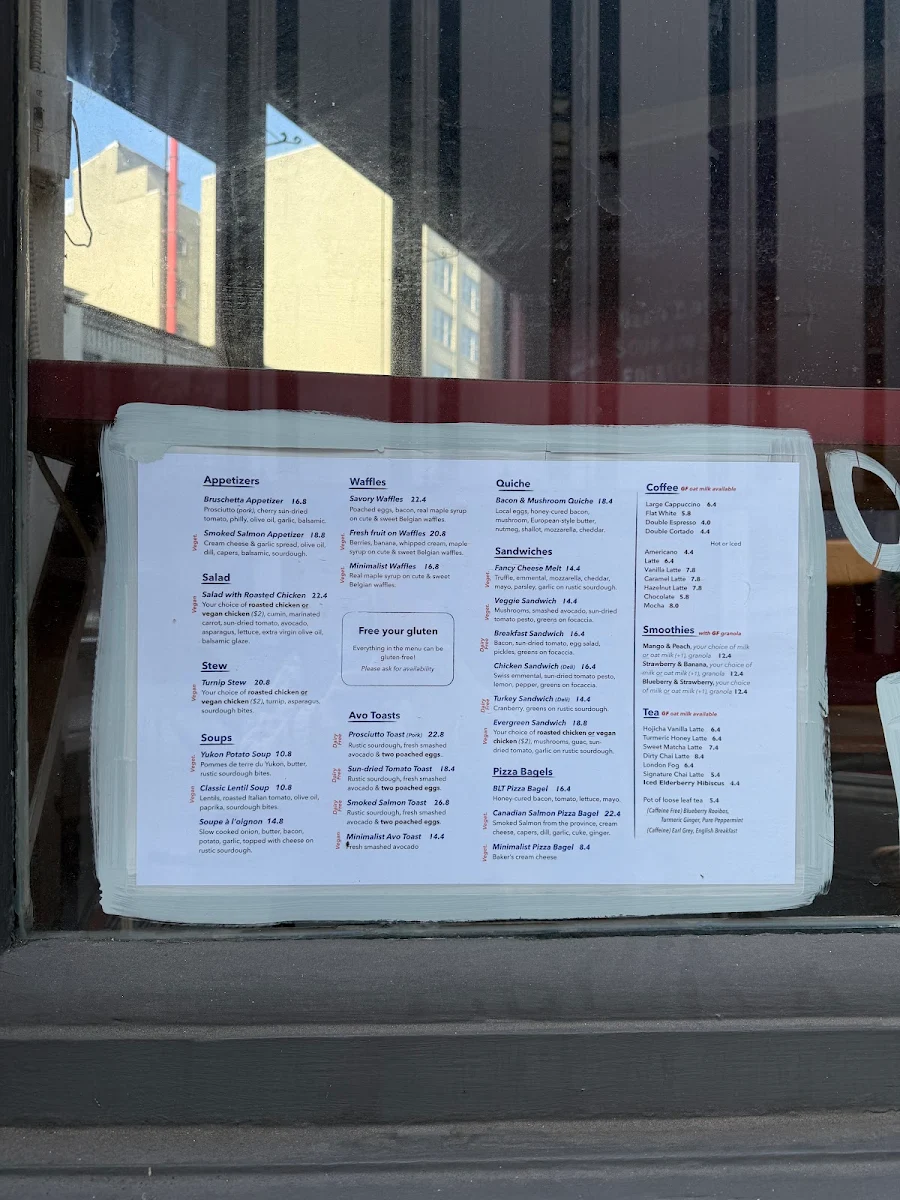 Appetizers
Bruschetta Appetizer 16.8
Prosciutto (pork), cherry sun-dried
tomato, philly, olive oil, garlic, balsamic.
Veget.
Smoked Salmon Appetizer 18.8
Cream cheese & garlic spread, olive oil,
dill, capers, balsamic, sourdough.
Salad
Vegan
Salad with Roasted Chicken 22.4
Your choice of roasted chicken or
vegan chicken ($2), cumin, marinated
carrot, sun-dried tomato, avocado,
asparagus, lettuce, extra virgin olive oil,
balsamic glaze.
Stew
Vegan
Turnip Stew 20.8
Your choice of roasted chicken or
vegan chicken ($2), turnip, asparagus,
sourdough bites.
Soups
Veget.
Yukon Potato Soup 10.8
Pommes de terre du Yukon, butter,
rustic sourdough bites.
Vegan
Classic Lentil Soup 10.8
Lentils, roasted Italian tomato, olive oil,
paprika, sourdough bites.
Soupe à l'oignon 14.8
Slow cooked onion, butter, bacon,
potato, garlic, topped with cheese on
rustic sourdough.
Waffles
Savory Waffles 22.4
Poached eggs, bacon, real maple syrup
on cute & sweet Belgian waffles.
Veget.
Fresh fruit on Waffles 20.8
Berries, banana, whipped cream, maple
syrup on cute & sweet Belgian waffles.
Veget.
Minimalist Waffles 16.8
Real maple syrup on cute & sweet
Belgian waffles.
Free your gluten
Everything in the menu can be
gluten-free!
Please ask for availability
Avo Toasts
Dairy
Free
Prosciutto Toast (Pork) 22.8
Rustic sourdough, fresh smashed
avocado & two poached eggs.
Dairy
Free
Sun-dried Tomato Toast 18.4
Rustic sourdough, fresh smashed
avocado & two poached eggs.
Dairy
Free
Smoked Salmon Toast 26.8
Rustic sourdough, fresh smashed
avocado & two poached eggs.
Vegan
Minimalist Avo Toast 14.4
Fresh smashed avocado
Quiche
Bacon & Mushroom Quiche 18.4
Local eggs, honey-cured bacon,
mushroom, European-style butter,
nutmeg, shallot, mozzarella, cheddar.
Sandwiches
Veget.
Fancy Cheese Melt 14.4
Truffle, emmental, mozzarella, cheddar,
mayo, parsley, garlic on rustic sourdough.
Veget.
Veggie Sandwich 14.4
Mushrooms, smashed avocado, sun-dried
tomato pesto, greens on focaccia.
Dairy
Free
Breakfast Sandwich 16.4
Bacon, sun-dried tomato, egg salad,
pickles, greens on focaccia.
Chicken Sandwich (Deli) 16.4
Swiss emmental, sun-dried tomato pesto,
lemon, pepper, greens on focaccia.
Dairy
Free
Turkey Sandwich (Deli) 14.4
Cranberry, greens on rustic sourdough.
Vegan
Evergreen Sandwich 18.8
Your choice of roasted chicken or vegan
chicken ($2), mushrooms, guac, sun-
dried tomato, garlic on rustic sourdough.
Pizza Bagels
BLT Pizza Bagel 16.4
Honey-cured bacon, tomato, lettuce, mayo.
Veget.
Canadian Salmon Pizza Bagel 22.4
Smoked Salmon from the province, cream
cheese, capers, dill, garlic, cuke, ginger.
Veget.
Minimalist Pizza Bagel 8.4
Baker's cream cheese
Coffee GF oat milk available
Large Cappuccino 6.4
Flat White 5.8
Double Espresso 4.0
Double Cortado 4.4
Hot or Iced
Americano 4.4
Latte 6.4
Vanilla Latte 7.8
Caramel Latte 7.8
Hazelnut Latte 7.8
Chocolate 5.8
Mocha 8.0
Smoothies with GF granola
Mango & Peach, your choice of milk
or oat milk (+1), granola 12.4
Strawberry & Banana, your choice of
milk or oat milk (+1), granola 12.4
Blueberry & Strawberry, your choice
of milk or oat milk (+1), granola 12.4
Tea GF oat milk available
Hojicha Vanilla Latte 6.4
Turmeric Honey Latte 6.4
Sweet Matcha Latte 7.4
Dirty Chai Latte 8.4
London Fog 6.4
Signature Chai Latte 5.4
Iced Elderberry Hibiscus 4.4
Pot of loose leaf tea 5.4
(Caffeine Free) Blueberry Rooibos,
Turmeric Ginger, Pure Peppermint
(Caffeine) Earl Grey, English Breakfast